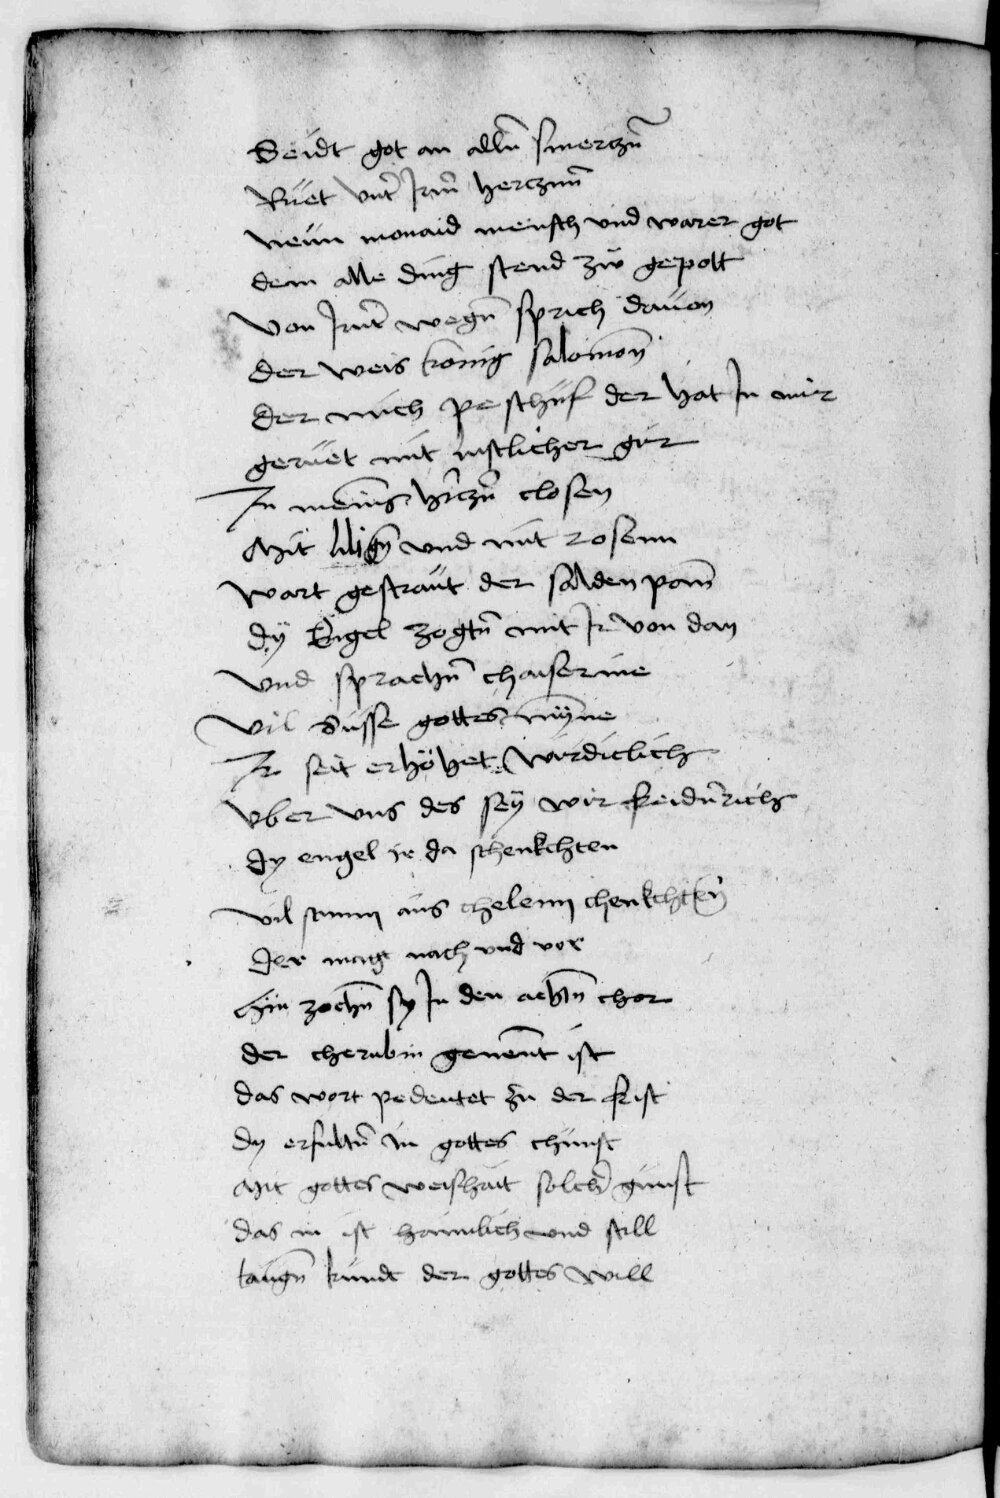 Seidt got an alln̄ smerczn̄
Ruet vnt̄ Irm̄ hercznn̄
neün monaid mensch vnd warer got
dem alle ding stend zw̎ gepott
Von Irnt̄ wegn̄ sprich dauon
der weis konig salomon̄
der mich peschüf der hat In mir
geruet mit lustlicher gir
In meins hrczn̄ closen
Mit lilign̄ vnd mit rosenn
Wart gestraut der salden pam̄
dÿ Engel zogtn̄ mit Ir von dan
Vnd sprachn̄ chaiserine
Vil süsse gottes mȳnne
Ir seit erhöhet wirdiclich
Vber vns des seÿ wir freidn̄rich
dy engel ir da schenkchten
Vil stimm aus chelenn chenkchtn̄
der mag nach vnd vor
hin zochn̄ sy In den achtn̄ chor
der cherubin genen̄t ist
das wort pedeutet zu der frist
dy erfultn̄ in gottes chunst
Mit gottes weishait solch̄ gunst
das in ist haimlich vnd still
taugn̄ kundt der gottes will